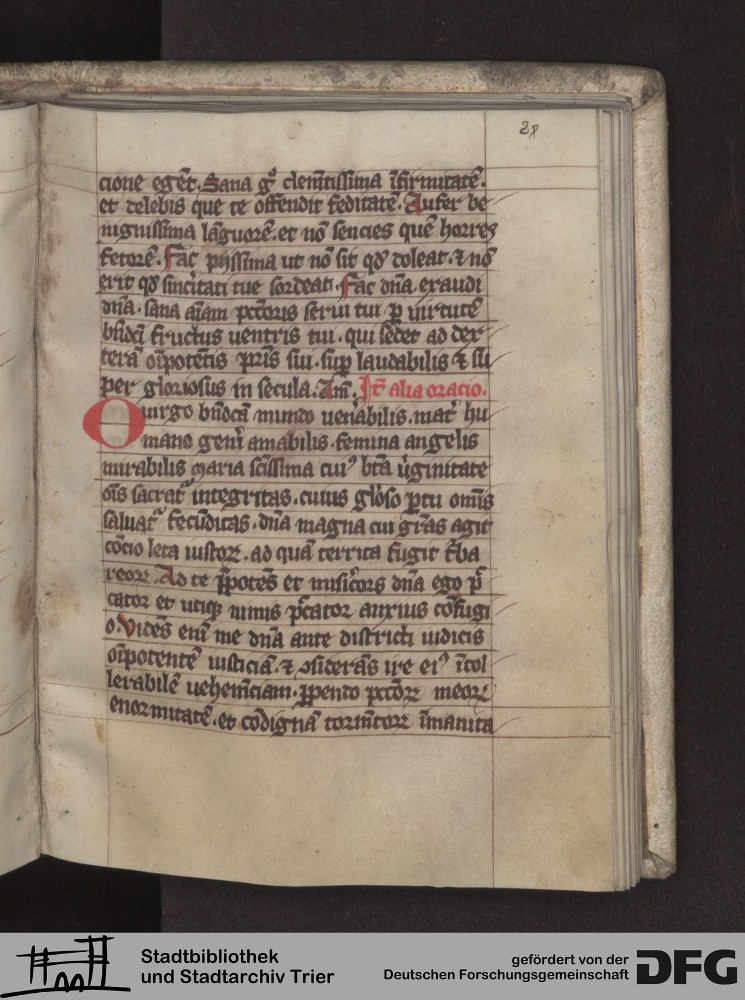 28
cione egēt. Sana gͦ clemētissima īfirmitatē.
et delebis que te offendit feditatē. Aufer be
nignissima lāguorē. et nō sencies quē horres
fetorē. Fac pijssima ut nō sit qd̄ doleat. ⁊ nō
erit qd̄ sinc̄itati tue sordeat. Fac dn̄a exaudi
dn̄a. sana aīam pctōris serui tui p̱ uirtutē
bn̄dcā fructus uentris tui. qui sedet ad dex
terā oīpotētis pr̄is sui. sup̱ laudabilis ⁊ su
per gloriosus in secula. Am̄. It̄ alia oracio.
O uirgo bn̄dcā mundo uen̄abilis. mat̄ hu
mano gen̄i amabilis. femina angelis
mirabilis maria sc̄issima cuiꝰ bt̄a u̓ginitate
oīs sacrat᷑ integritas. cuius gl̓oso p̱tu omīs
saluat᷑ fecūditas. dn̄a magna cui gr̄as agit
cōcio leta iustoꝝ. ad quā territa fugit t̄ba
reoꝝ. Ad te p̄potēs et mis̓icors dn̄a ego p̄
cator et utiqꝫ nimis p̄cator anxius cōfugi
o. Vidēs enī me dn̄a ante districti iudicis
oīpotentē iusticiā. ⁊ ꝯsiderās ire eiꝰ ītol
lerabilē uehemēciam. p̱pendo pctōꝝ meoꝝ
enormitatē. et cōdignā tormētoꝝ īmanita
Stadtbibliothek
und Stadtarchiv Trier
gefördert von der
Deutschen Forschungsgemeinschaft
DFG